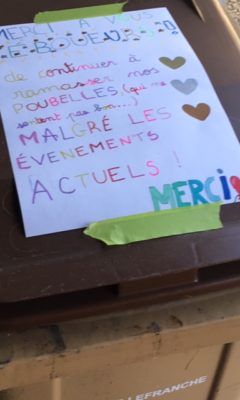 MERCI À VOUS
LES ÉBOUEURS!
de continuer à
ramasser nos
POUBELLES, (qui ne
sentent pas bon...)
MALGRÉ LES
ÉVENEMENTS
ACTUELS !
MERCI
LEFRANCHE